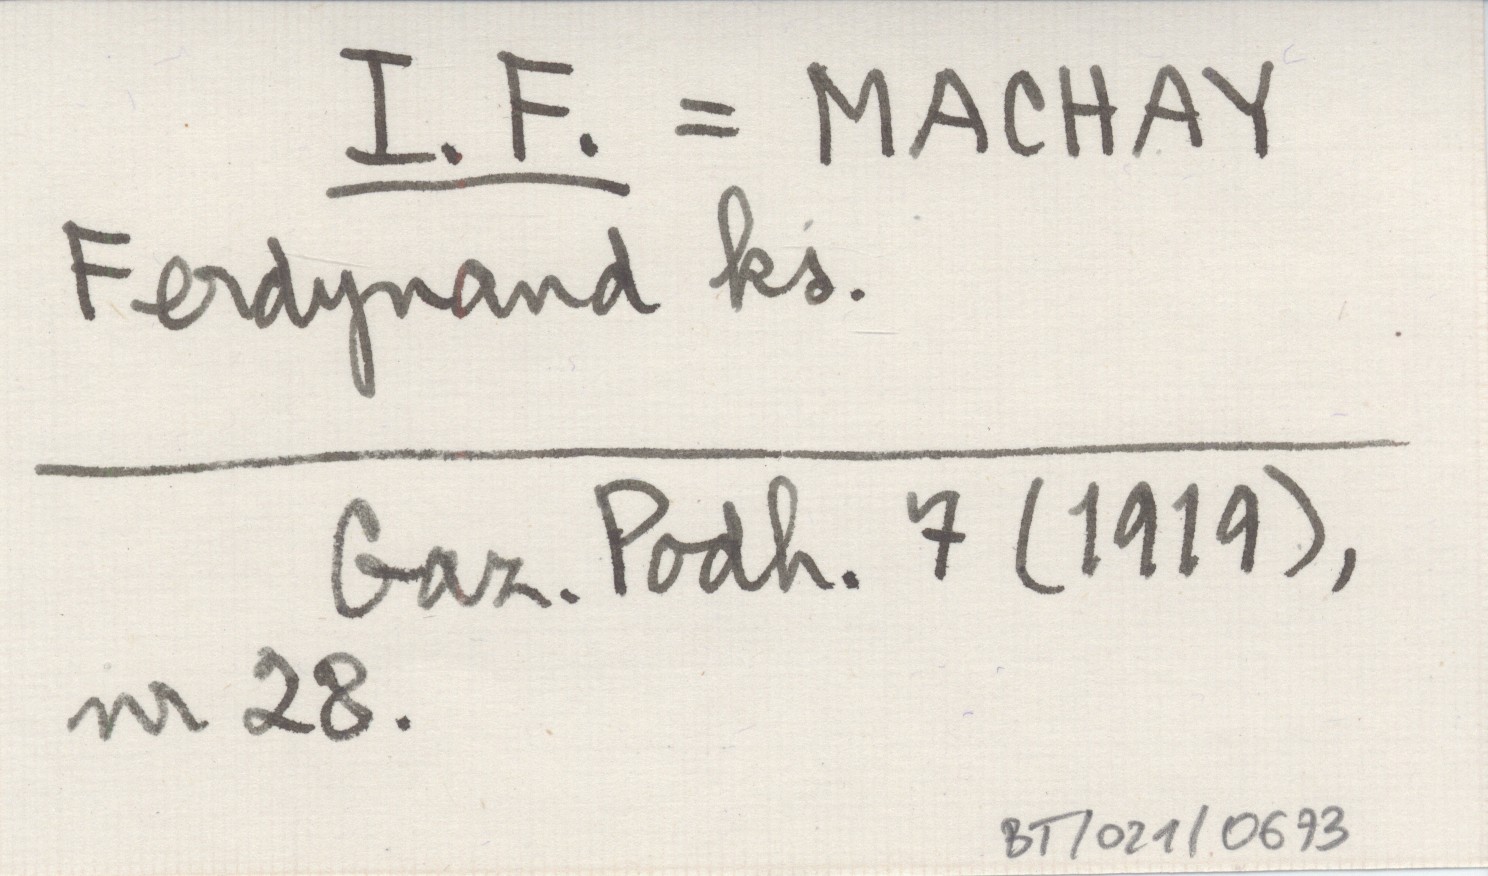 I. F. = MACHAY
Ferdynand ks.
Gaz. Podh. 7 (1919),
nr 28.
BT/021/0693